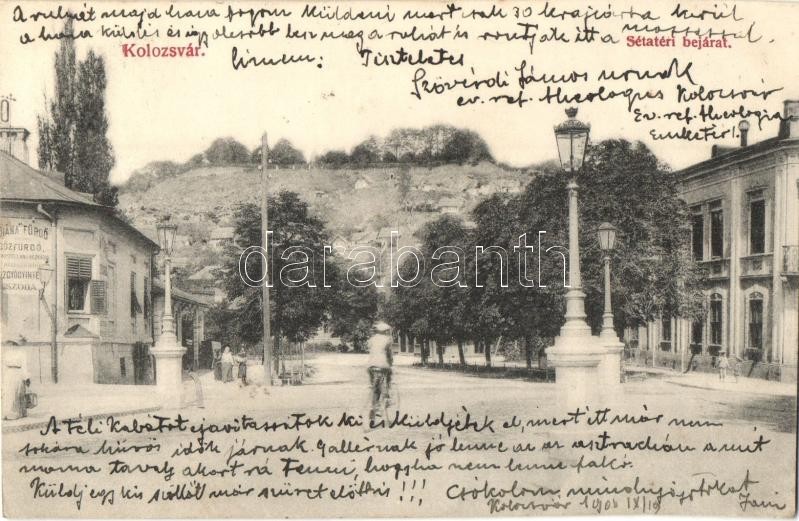 A ruhát majd haza fogom küldeni mert csak 30 krajcárba kerül
a haza küldés és így olcsóbb lesz meg a ruhát is rontják itt a mosással.
Kolozsvár.
Sétatéri bejárat.
Címem: Tiszteletes
Szövérdi János urnak
ev. ref. theologus Kolozsvár
Ev. ref. theologia
DIANA FÜRDŐ
GŐZFÜRDŐ
USZODA
darabanth
A téli kabátot javítassátok ki és küldjétek el, mert itt már nem
sokára hüvös idők járnak. Gallérnak jó lenne az az astrachán a mit
mama tavaly akart rá tenni, hogyha nem lenne fakó.
Küldj egy kis szőllőt már szüret előtt is !!! Csókolom mindnyájotokat Jani
Kolozsvár 1908 IX/19